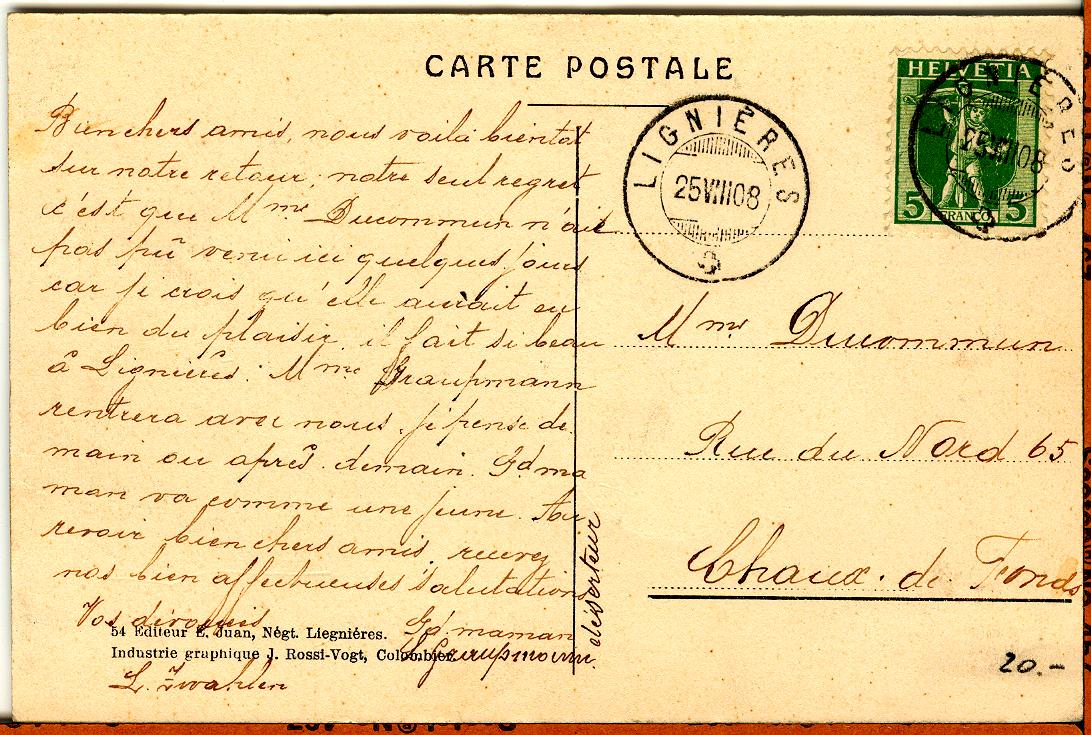 CARTE POSTALE
Bien chers amis, nous voilà bientôt
sur notre retour, notre seul regret
c'est que Mme Ducommun n'ait
pas pû venir ici quelques jours
car je crois qu'elle aurait eu
bien du plaisir, il fait si beau
à Lignières. Mme Graupmann
rentrera avec nous. je pense de
main ou après. demain. Gd ma
man va comme une jeune. Au
revoir bien chers amis, recevez
nos bien affectueuses salutations
Vos dévoués Gd maman
Graupmann
L. Zwahlen
déserteur
54 Editeur E. Juan, Négt. Liegniéres.
Industrie graphique J. Rossi-Vogt, Colombier.
LIGNIÈRES
25 VIII 08
HELVETIA
5 FRANCO 5
LIGNIÈRES
25 VIII 08
Mme Ducommun
Rue du Nord 65
Chaux. de Fonds
20.-